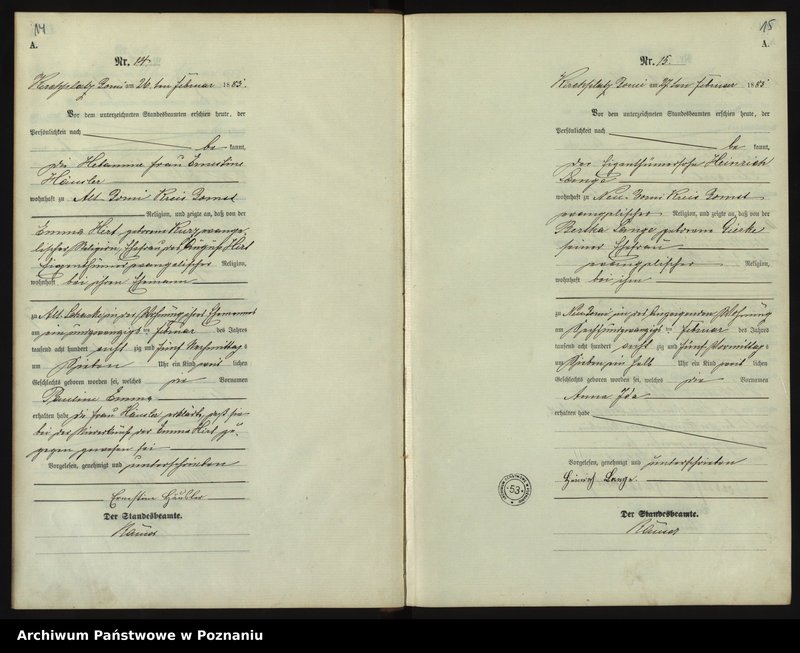 14
A.
Nr. 14.
Kirchplatz Borui am 26. ten Februar 1885.
Vor dem unterzeichneten Standesbeamten erschien heute, der
Persönlichkeit nach
be kannt,
die Hebamme Frau Ernestine
Häusler
wohnhaft zu Alt Borui Kreis Bomst
Religion, und zeigte an, daß von der
Emma Hirt geborene Kurz evange-
lischer Religion, Ehefrau des August Hirt
Eigenthümer evangelischer Religion,
wohnhaft bei ihrem Ehemann
zu Alt in der Wohnung ihres Ehemannes
am ein und zwanzigsten Februar des Jahres
tausend acht hundert acht zig und fünf Nachmittag s
um Sieben Uhr ein Kind weib lichen
Geschlechts geboren worden sei, welches die Vornamen
Pauline Emma
erhalten habe die Frau Häusler erklärte, daß sie
bei der Niederkunft der Emma Hirt zu-
gegen gewesen sei
Vorgelesen, genehmigt und unterschrieben
Ernestine Häusler
Der Standesbeamte.
15
A.
Nr. 15.
Kirchplatz Borui am 27. ten Februar 1885
Vor dem unterzeichneten Standesbeamten erschien heute, der
Persönlichkeit nach
be kannt,
der Eigenthümersohn Heinrich
Lange
wohnhaft zu Neu-Borui Kreis Bomst
evangelischer Religion, und zeigte an, daß von der
Bertha Lange geborene
seiner Ehefrau
evangelischer Religion,
wohnhaft bei ihm
zu Neu Borui in der Wohnung
am Sechsundzwanzigsten Februar des Jahres
tausend acht hundert acht zig und fünf Vormittag s
um Sieben ein halb Uhr ein Kind weib lichen
Geschlechts geboren worden sei, welches die Vornamen
Anna Ida
erhalten habe
Vorgelesen, genehmigt und unterschrieben
Heinrich Lange.
53
Der Standesbeamte.
Archiwum Państwowe w Poznaniu